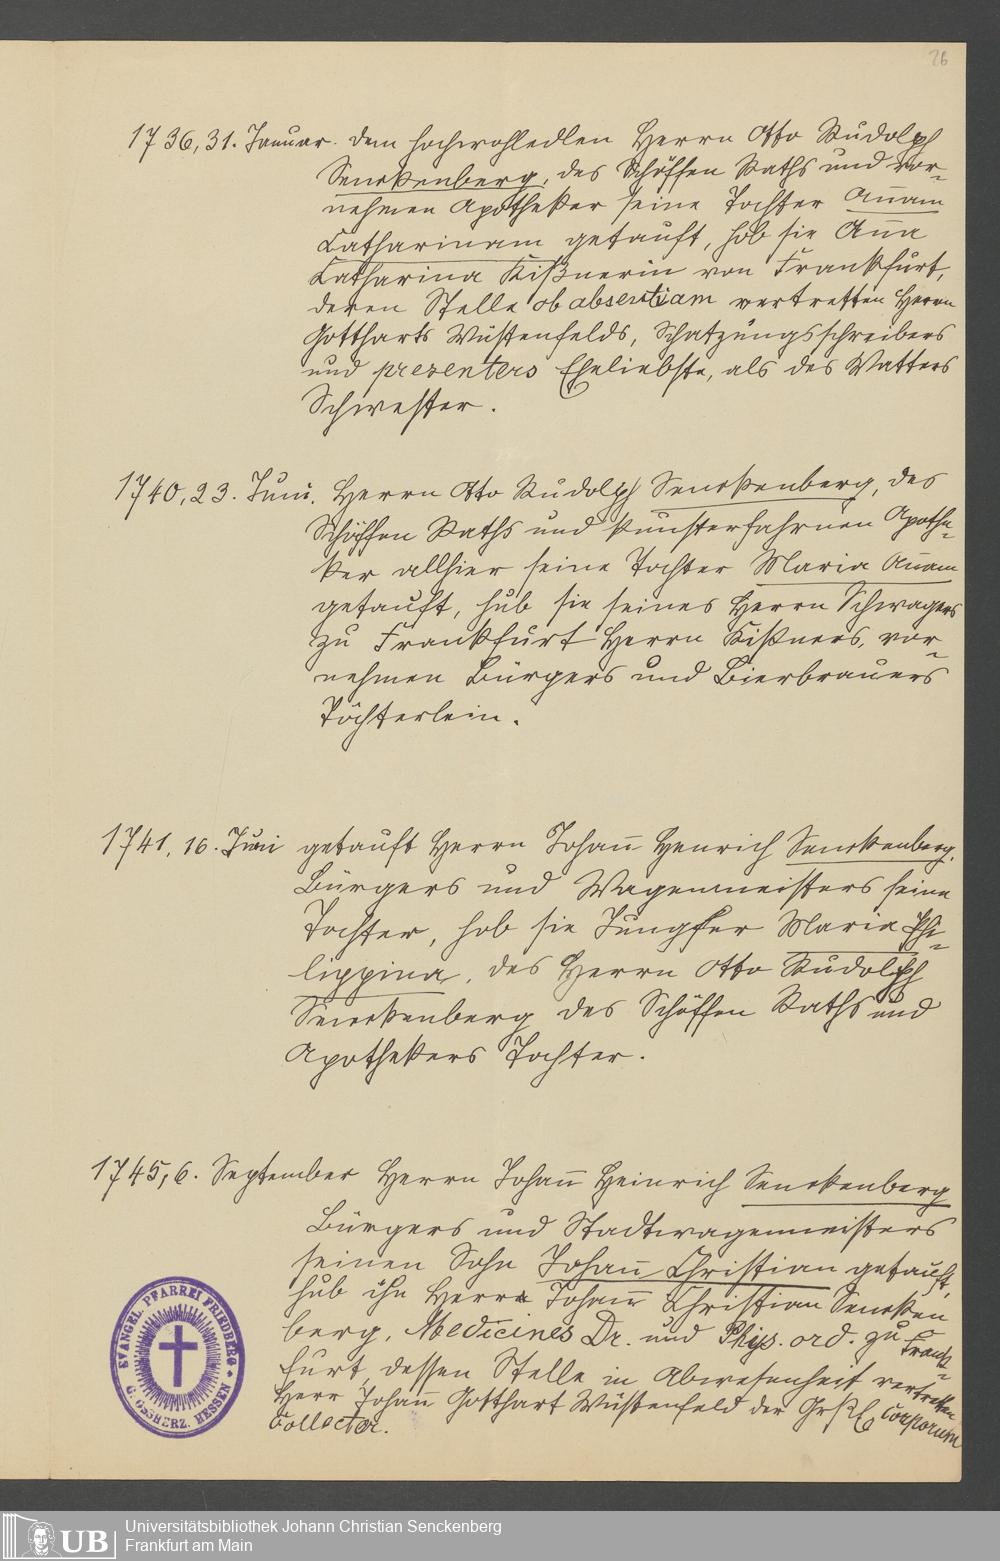 26
1736, 31. Januar. dem hochwohledlen Herrn Otto Rudolph
Senckenberg, des Schöffen Raths und vor-
nehmen Apotheker seine Tochter Ann̄am
Catharinam getauft, hob sie Ann̄a
Catharina Kißnerin von Frankfurt,
deren Stelle ob absentiam vertretten Herrn
Gottharts Wüstenfelds, Schatzungsschreibers
und presenters Eheliebste, als des Vatters
Schwester.
1740, 23. Juni. Herrn Otto Rudolph Senckenberg, des
Schöffen Raths und kunsterfahrnen Apothe-
ker allhier seine Tochter Maria Ann̄am
getauft, hub sie seines Herrn Schwagers
zu Frankfurt Herrn Kißners, vor-
nehmen Bürgers und Bierbrauers
Töchterlein.
1741, 16. Juni getauft Herrn Johan̄ Henrich Senckenberg,
Bürgers und Wagenmeisters seine
Tochter, hob sie Jungfer Maria Phi-
lippina, des Herrn Otto Rudolph
Senckenberg des Schöffen Raths und
Apothekers Tochter.
1745, 6. September Herrn Johan̄ Heinrich Senckenberg
Bürgers und Stadtwagenmeisters
seinen Sohn Johan̄ Christian getauft,
hub ihn Herr Johan̄ Christian Sencken
berg, Medicines Dr. und Phys. ord. zu Frank-
furt, dessen Stelle in Abwesenheit vertretten
Herr Johan̄ Gotthart Wüstenfeld der Corporum
Collector.
EVANGEL. PFARREI FRIEDBERG
GROSSHERZ. HESSEN
UB
Universitätsbibliothek Johann Christian Senckenberg
Frankfurt am Main